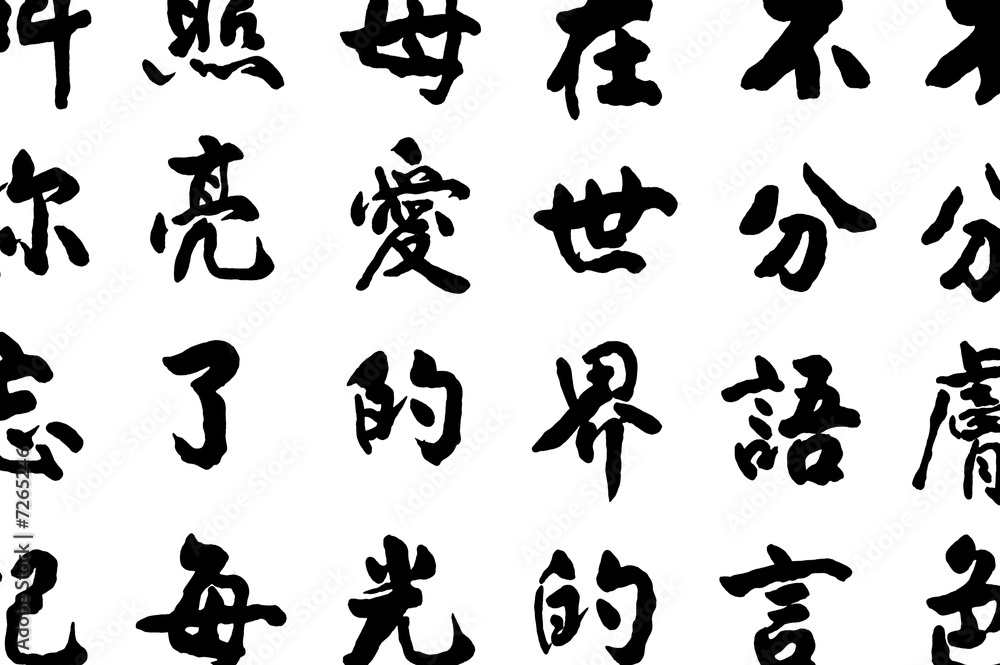 不分膚色
不分語言
在世界的
母愛的光
照亮了每
你忘
Adobe Stock